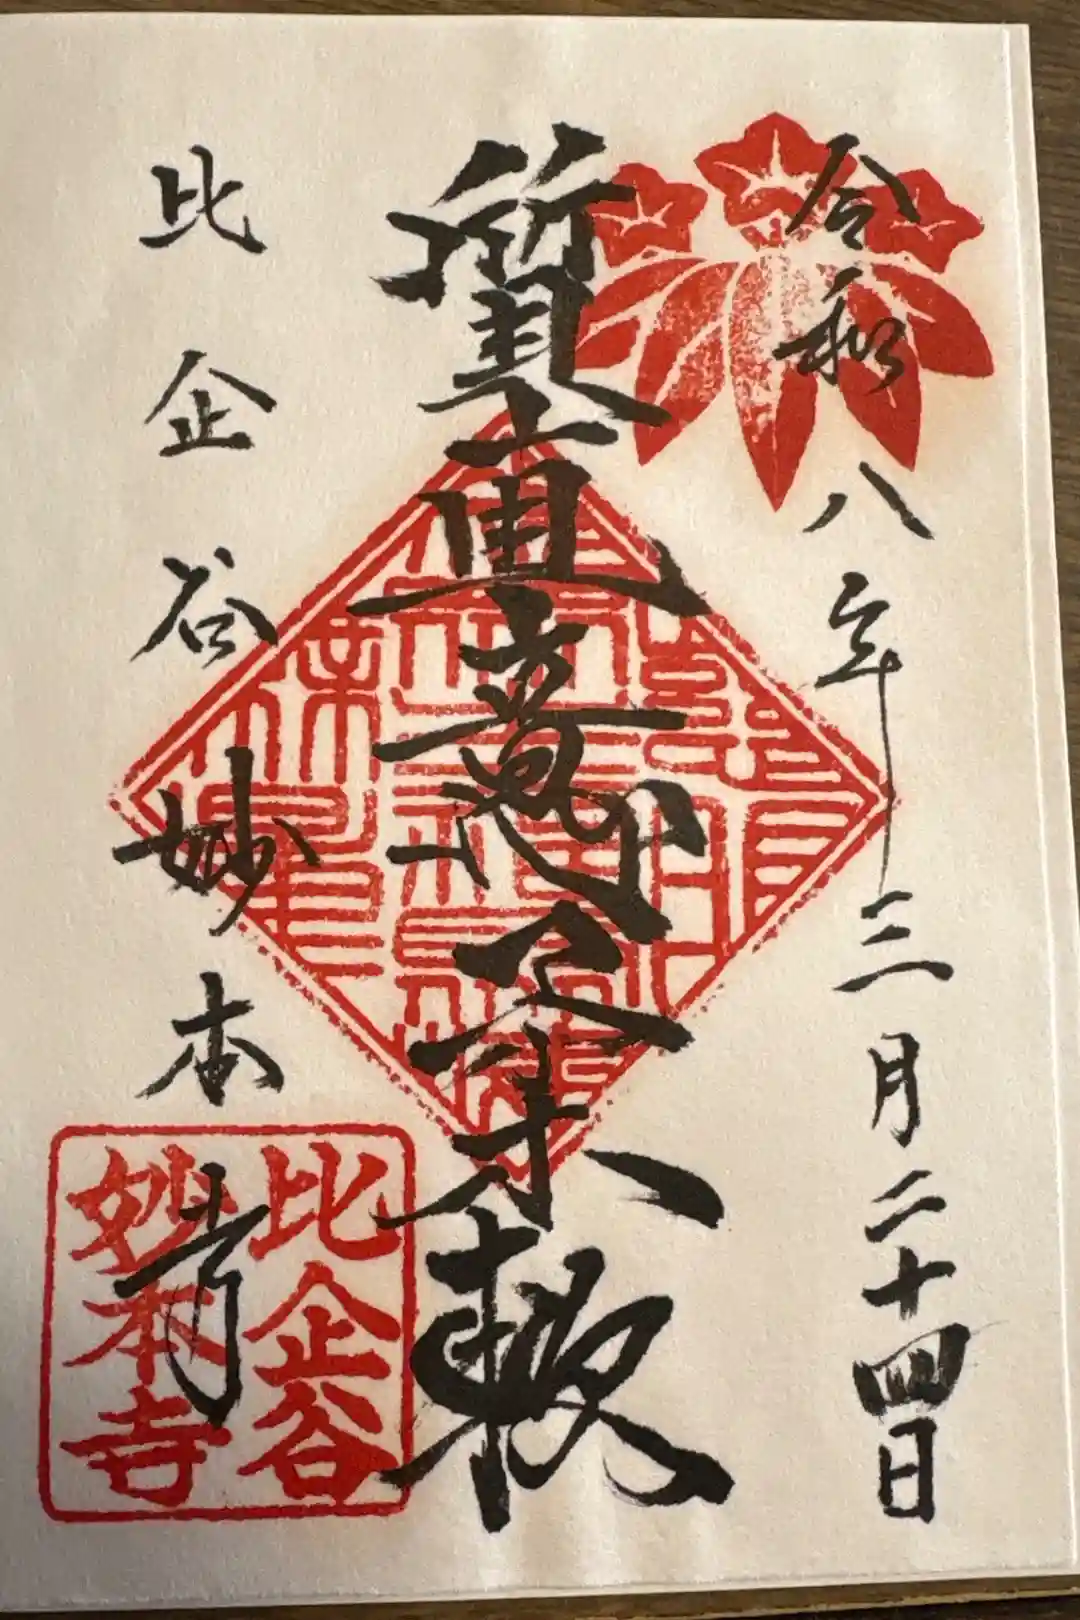 令和八年三月二十四日
質直意柔軟
比企谷妙本寺
比企谷
妙本寺